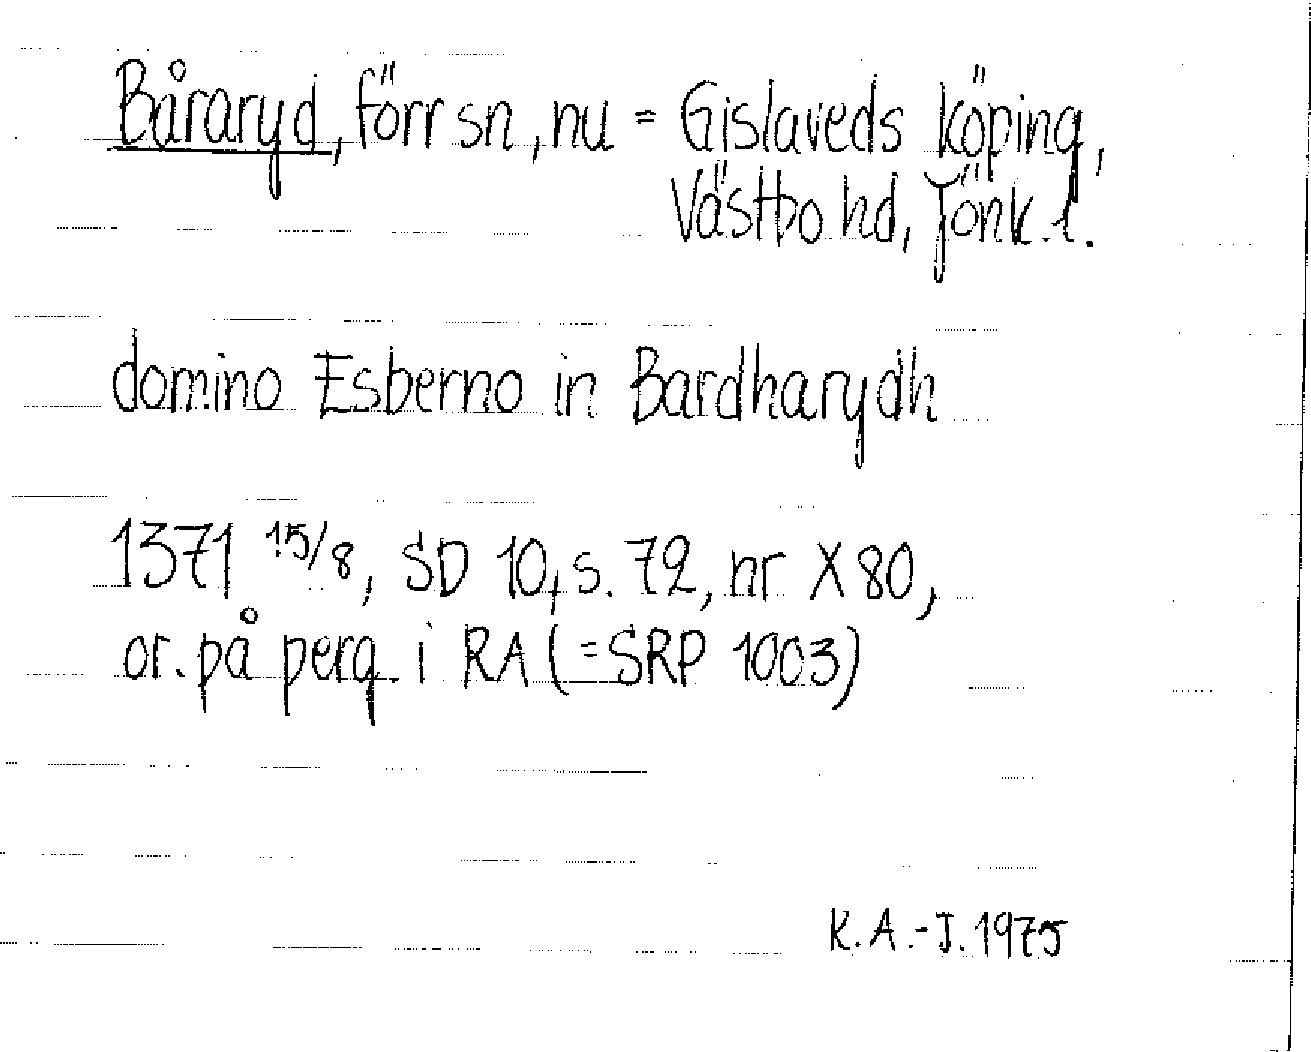 Båraryd, förr sn, nu = Gislaveds köping,
Västbo hd, Jönk. l.
domino Esberno in Bardharydh
1371 15/8, SD 10, s. 72, nr X 80,
or. på perg. i RA (=SRP 1003)
K.A.-J. 1975